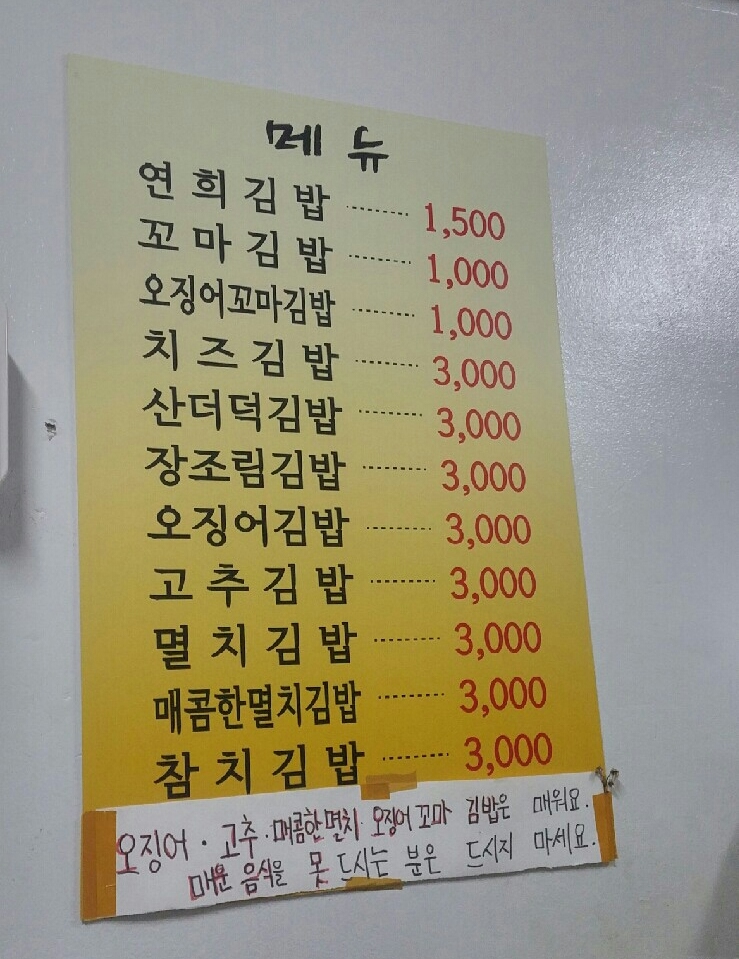 메뉴
연희김밥 ········ 1,500
꼬마김밥 ········ 1,000
오징어꼬마김밥 ········ 1,000
치즈김밥 ········ 3,000
산더덕김밥 ········ 3,000
장조림김밥 ········ 3,000
오징어김밥 ········ 3,000
고추김밥 ········ 3,000
멸치김밥 ········ 3,000
매콤한멸치김밥 ········ 3,000
참치김밥 ········ 3,000
오징어·고추·매콤한멸치·오징어꼬마 김밥은 매워요.
매운 음식을 못 드시는 분은 드시지 마세요.